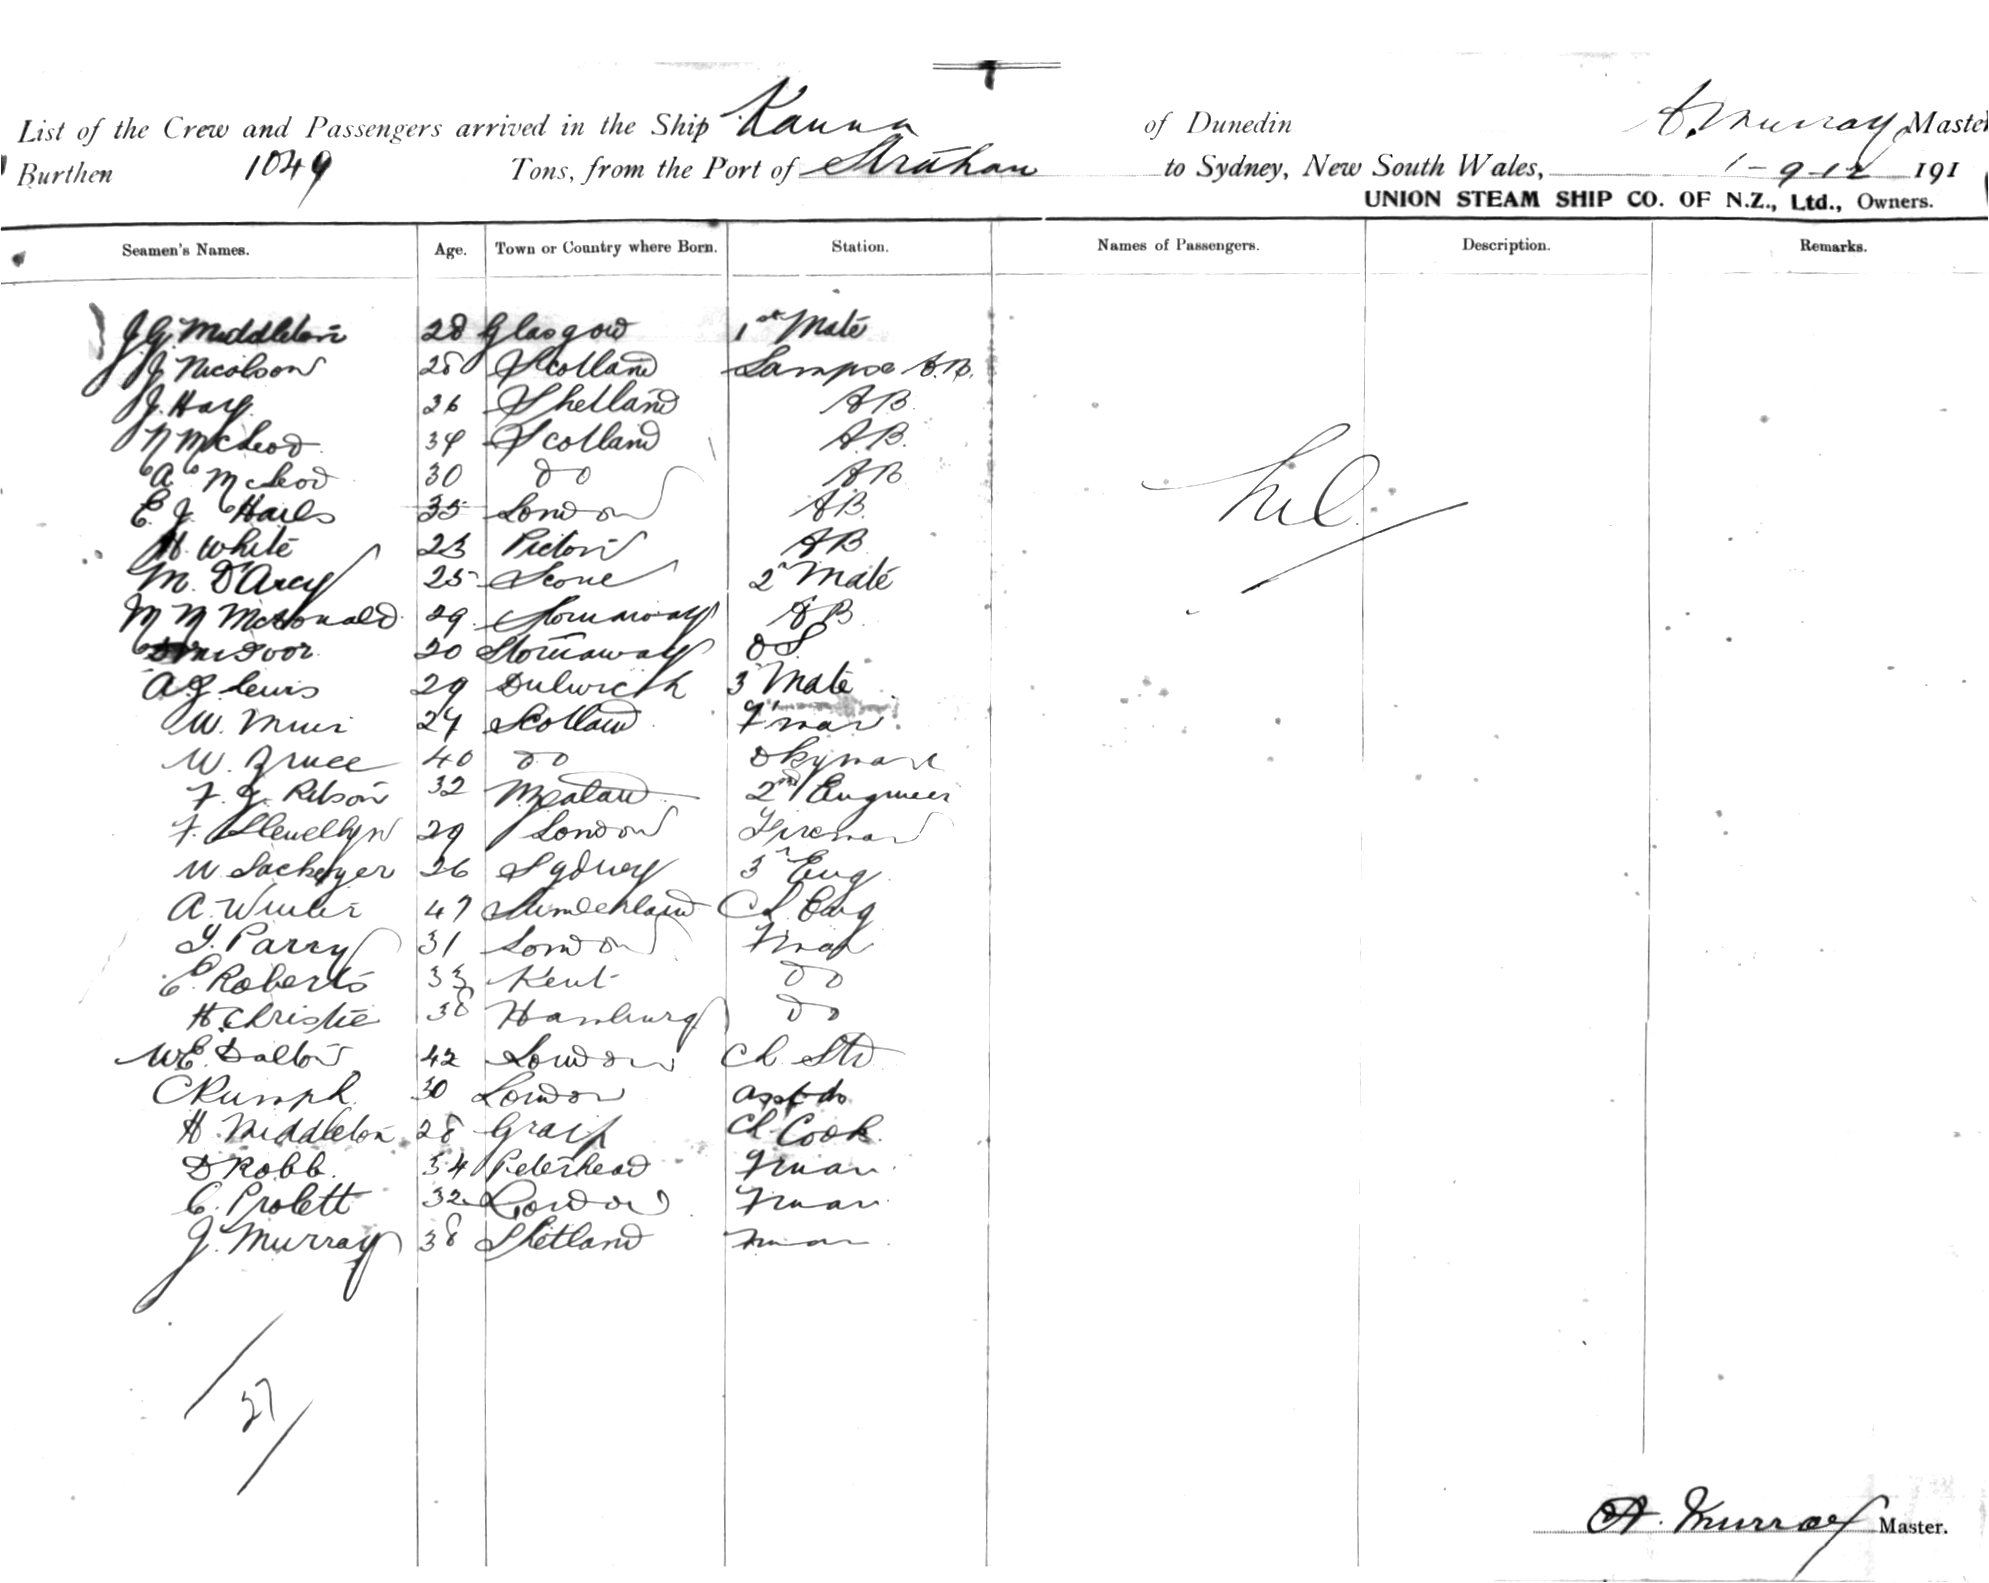 List of the Crew and Passengers arrived in the Ship Kauna of Dunedin A. Murray Master
Burthen 1049 Tons, from the Port of Strahan to Sydney, New South Wales, 1-9-12 191
UNION STEAM SHIP CO. OF N.Z., Ltd., Owners.
Seamen's Names. Age. Town or Country where Born. Station. Names of Passengers. Description. Remarks.
J. G. Middleton 28 Glasgow 1st Mate
J. Nicolson 28 Scotland Lamps & A.B.
J. Hay 26 Shetland AB
N McLeod 34 Scotland A.B.
A McLeod 30 Do AB
E. J. Hails 35 London AB
H. White 23 Picton AB
M. D'Arcy 25 Scone 2 Mate
M M McDonald 29 Stornaway AB
20 Stornaway OS
A. J. Lewis 29 Dulwich 3 Mate
W. Muir 24 Scotland F'man
W. Bruce 40 Do Dkyman
F. J. 32 2nd Engineer
F. Llewellyn 29 London Fireman
W. 26 Sydney 3r Eng
A. Winter 47 Sunderland Ch. Eng
Parry 31 London Fman
E. Roberts 33 Kent Do
H. Christie 38 Hamburg Do
W E. Dalton 42 London Ch. Std
C Rumph. 30 London asst do
H. Middleton 28 Ch Cook.
D Robb. 34 Peterhead Fman.
C. Probett 32 London Fman.
J. Murray 38 Shetland Fman.
Nil
27
A. Murray Master.